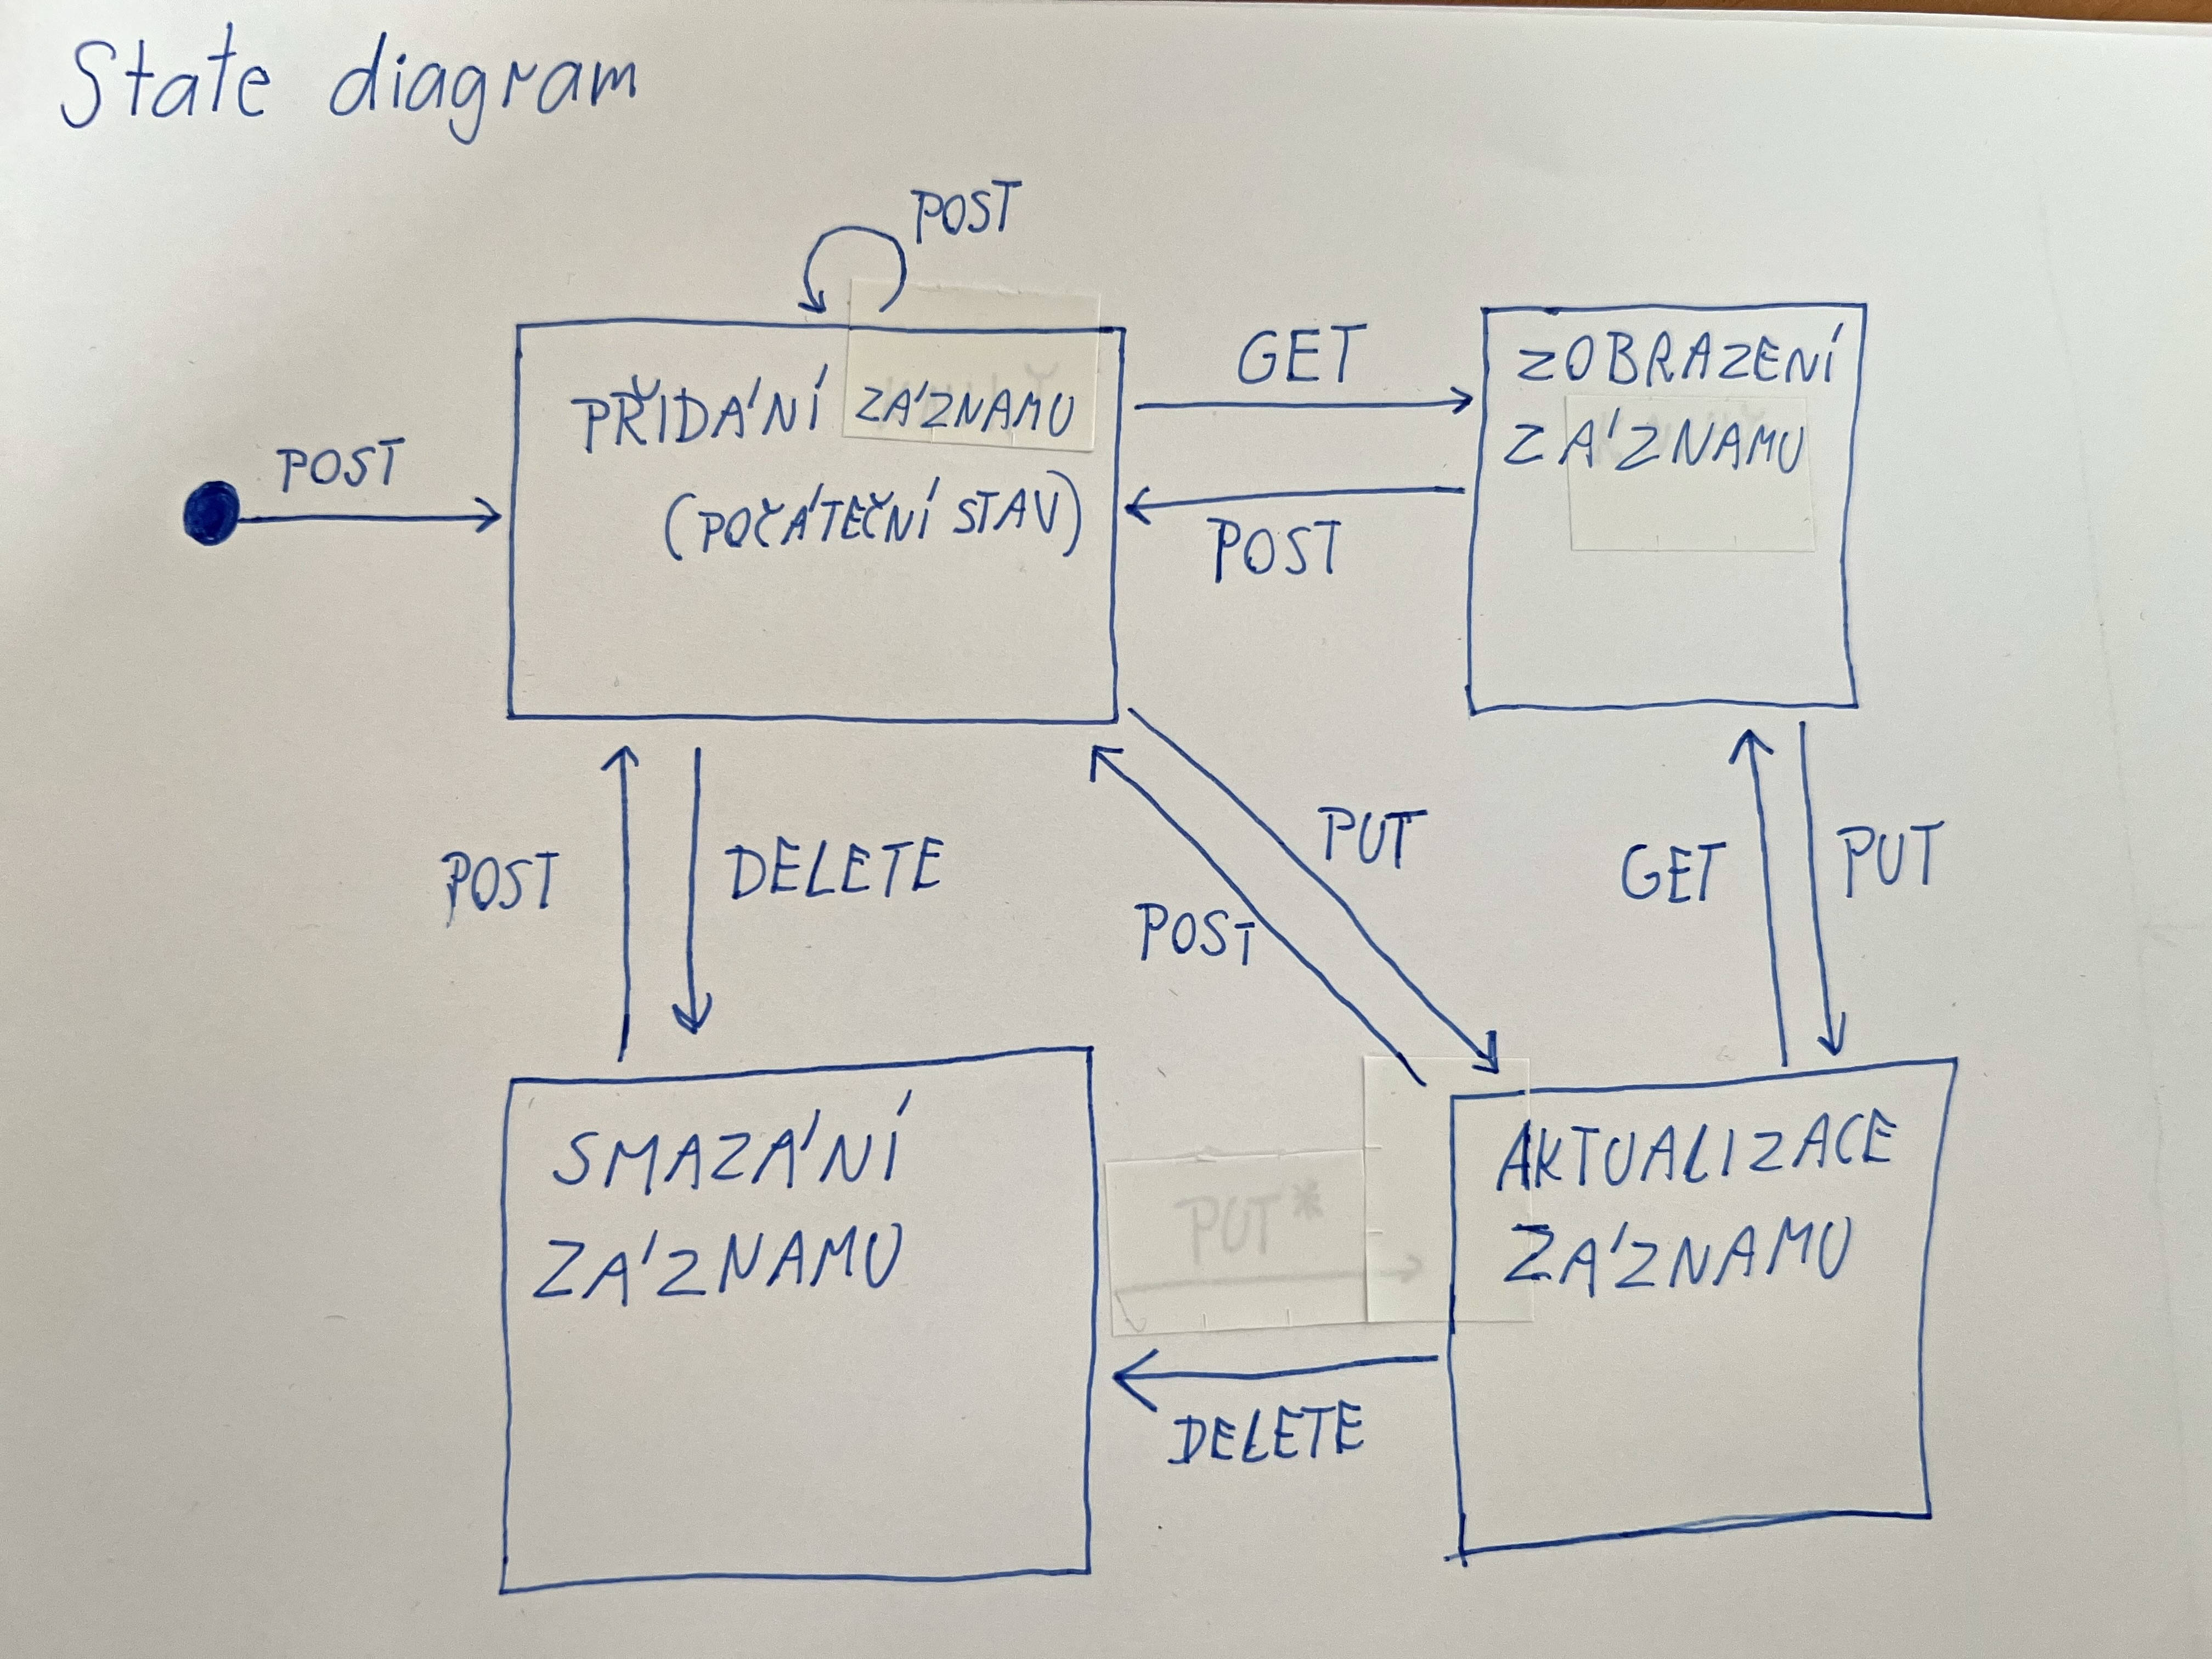 State diagram
POST
POST
PŘIDÁNÍ ZÁZNAMU
(POČÁTEČNÍ STAV)
GET
POST
ZOBRAZENÍ
ZÁZNAMU
POST
DELETE
PUT
POST
GET
PUT
SMAZÁNÍ
ZÁZNAMU
PUT*
DELETE
AKTUALIZACE
ZÁZNAMU